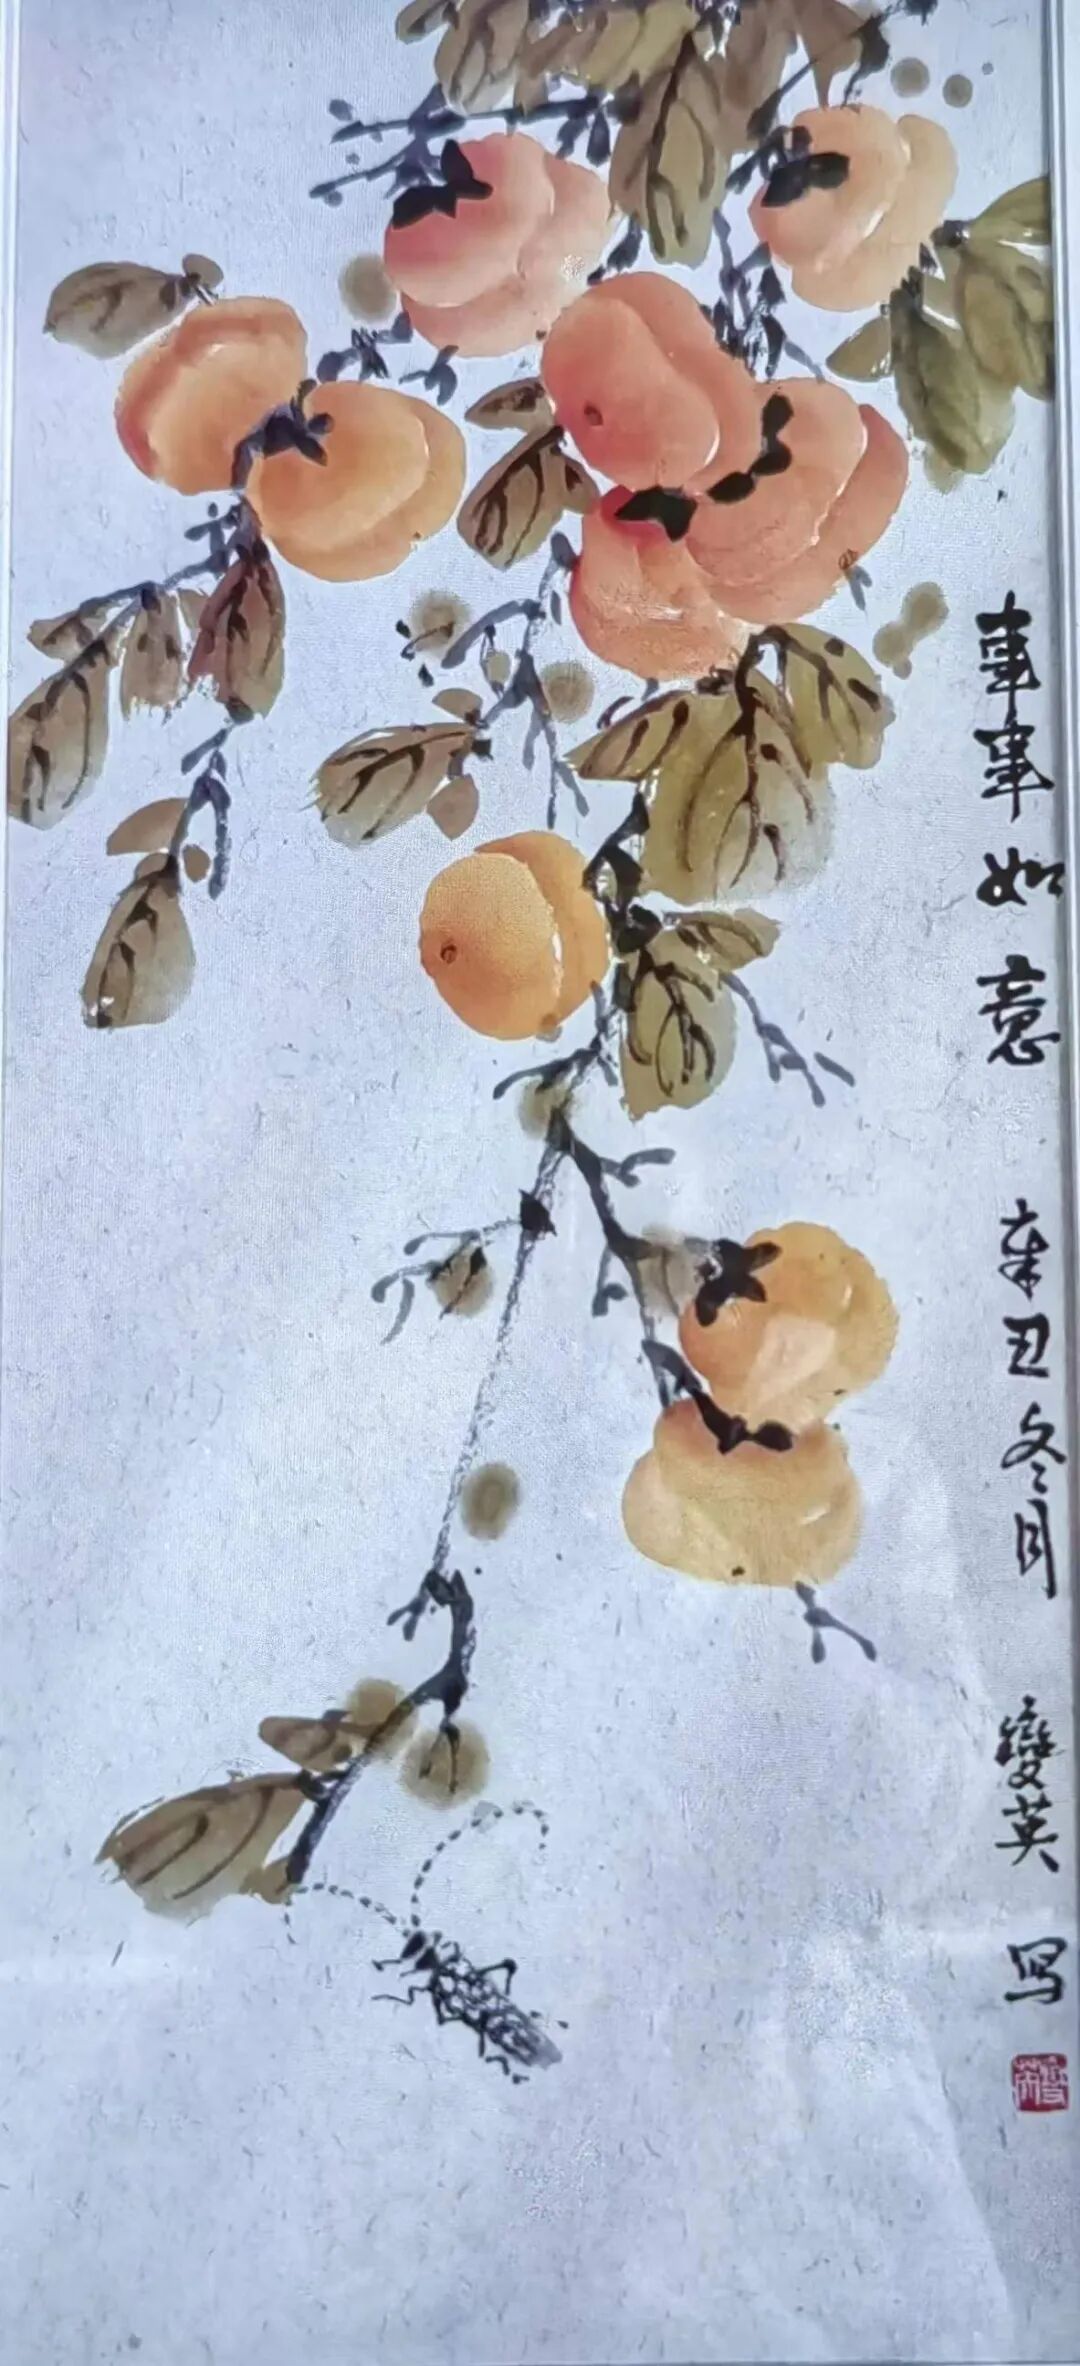 事事如意 辛丑冬月 燮英 写